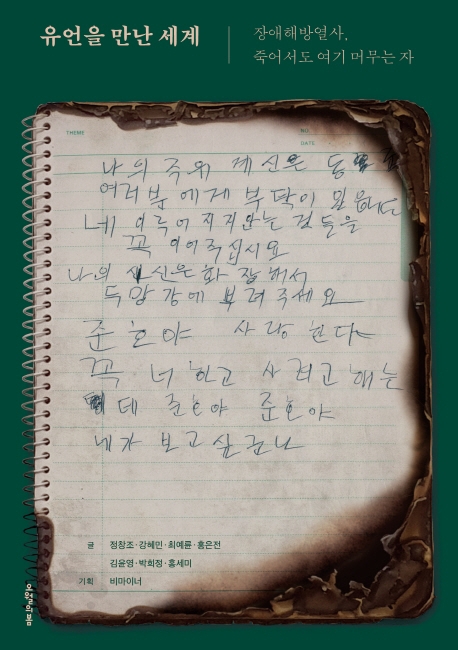 유언을 만난 세계
장애해방열사,
죽어서도 여기 머무는 자
THEME
NO.
DATE
나의 죽위 제신은
여러분에게 부탁이
네 이루어지지안는 것들을
꼭 이어주십시요
나의 시신은 화장해서
두망강에 뿌려주세요
준호야 사랑한다
꼭 너하고 사려고 해는
데 준호야 준호야
네가 보고싶군나
글 정창조·강혜민·최예륜·홍은전
김윤영·박희정·홍세미
기획 비마이너
오월의봄